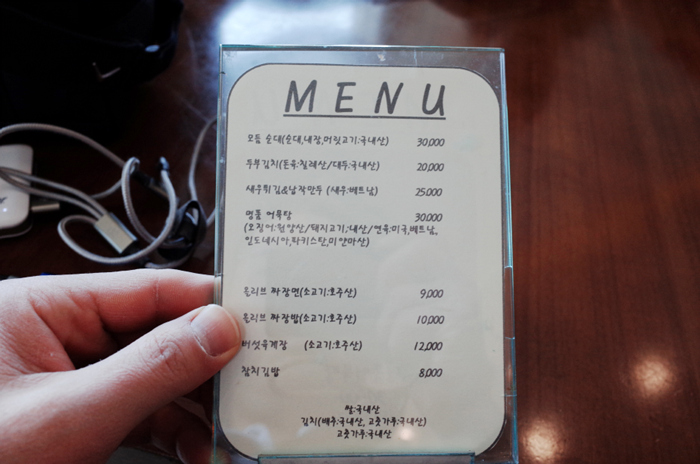 MENU
모듬 순대(순대,내장,머릿고기:국내산) 30,000
두부김치(돈육:칠레산/대두:국내산) 20,000
새우튀김&납작만두 (새우:베트남) 25,000
명품 어묵탕 30,000
(오징어:원양산/돼지고기:내산/연육:미국,베트남,
인도네시아,파키스탄,미얀마산)
올리브 짜장면(소고기:호주산) 9,000
올리브 짜장밥(소고기:호주산) 10,000
버섯육계장 (소고기:호주산) 12,000
참치김밥 8,000
쌀:국내산
김치(배추:국내산, 고춧가루:국내산)
고춧가루:국내산